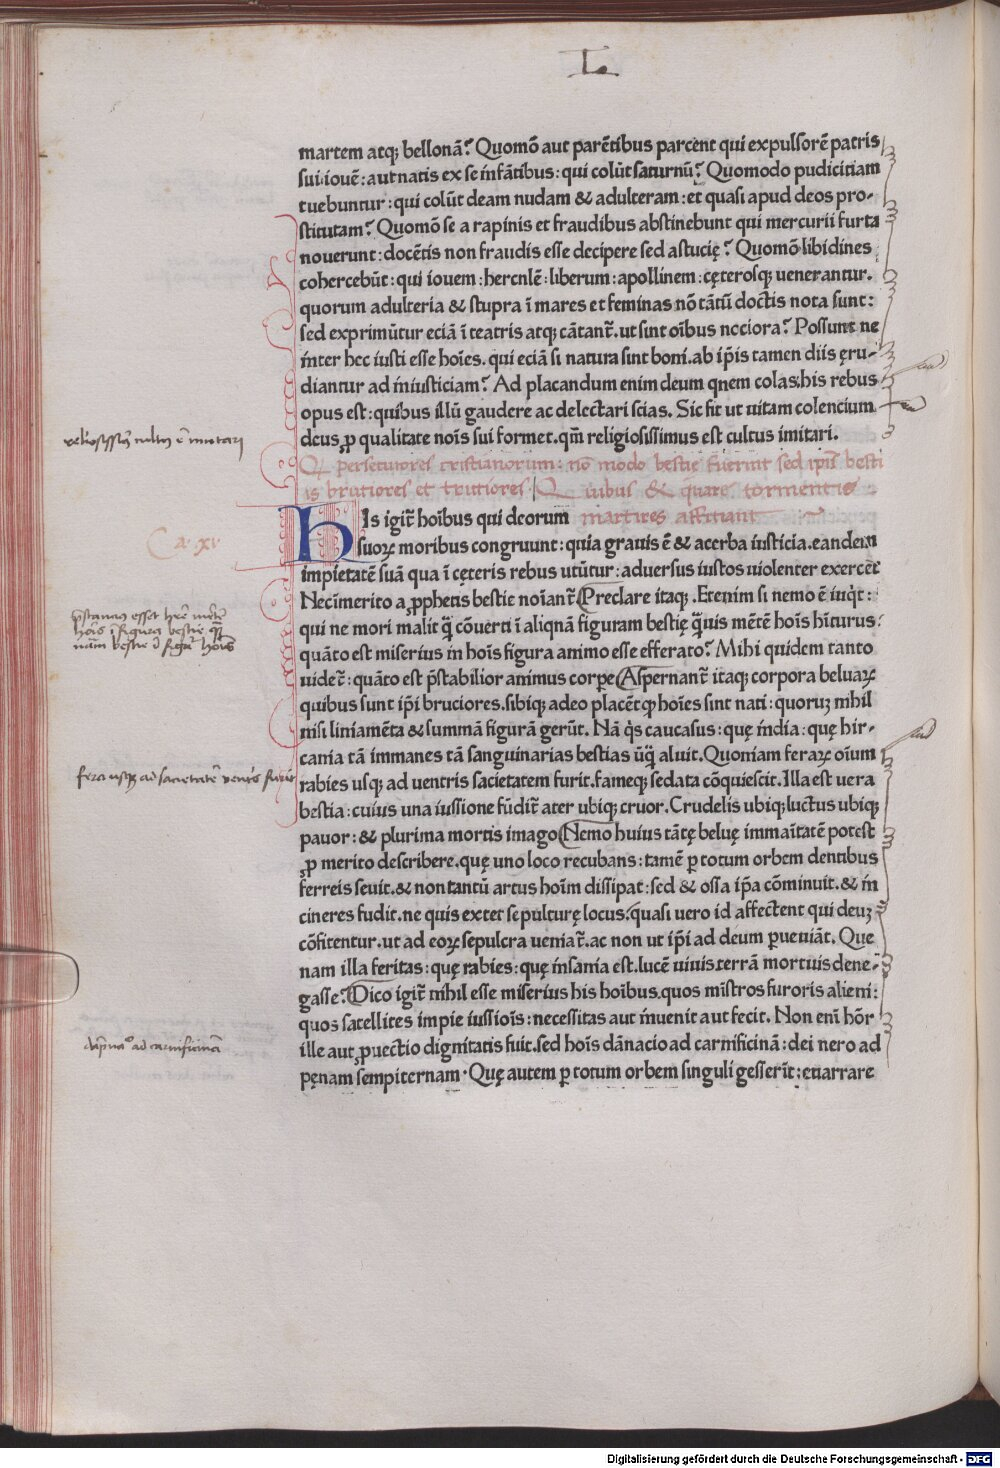 L.
martem atq; bellonā? Quomō aut parētibus parcent qui expulsorē patris
sui iouē: aut natis ex se infātibus: qui colūt saturnū? Quomodo pudicitiam
tuebuntur: qui colūt deam nudam & adulteram: et quasi apud deos pro-
stitutam? Quomō se a rapinis et fraudibus abstinebunt qui mercurii furta
nouerunt: docētis non fraudis esse decipere sed astucię? Quomō libidines
cohercebūt: qui iouem: hercnlē: liberum: apollinem: cęterosq; uenerantur.
quorum adulteria & stupra ī mares et feminas nō tātū doctis nota sunt:
sed exprimūtur eciā ī teatris atq; cātant̄. ut sint oībus nociora? Possunt ne
inter hec iusti esse hoīes. qui eciā si natura sint boni. ab ip̄is tamen diis ęru-
diantur ad iniusticiam? Ad placandum enim deum qnem colas. his rebus
opus est: quibus illū gaudere ac delectari scias. Sic fit ut uitam colencium
deus ꝓ qualitate nois sui formet. qm̄ religiosissimus est cultus imitari.
religiosissim9 cultus ē imitari
Q persecutores cristianorum: nō modo bestie fuerint sed ipis besti
is brutiores et truciores. Quibus & quare tormentis
martires afficiant
Ca. xv
HIs igit̄ hoībus qui deorum
suoꝝ moribus congruunt: quia grauis ē & acerba iusticia. eandem
impietatē suā qua ī cęteris rebus utūtur: aduersus iustos uiolenter exercēt
Nec īmerito a ꝓphetis bestie noīant̄. Preclare itaq. Etenim si nemo ē inq̇t:
qui ne mori malit q̄̄ cōuerti ī aliqnā figuram bestię q̄uis mētē hoīs hīturus:
quāto est miserius in hoīs figura animo esse efferato? Mihi quidem tanto
uidet̄: quāto est p̄stabilior animus corpe Aspernant̄ itaq; corpora beluaꝝ
quibus sunt ip̄i bruciores. sibiq; adeo placēt ꝙ hoīes sint nati: quoruz nihil
nisi liniamēta & summā figurā gerūt. Nā q̇s caucasus: quę india: quę hir-
cania tā immanes tā sanguinarias bestias ūq̄ aluit. Quoniam feraꝝ oīum
rabies usq; ad uentris sacietatem furit. fameq; sedata cōquiescit. Illa est uera
bestia: cuius una iussione fūdit̄ ater ubiq; cruor. Crudelis ubiq; luctus ubiq;
pauor: & plurima mortis imago Nemo huius tātę beluę immaītatē potest
ꝓ merito describere. quę uno loco recubans: tamē ꝑ totum orbem dentibus
ferreis seuit. & non tantū artus hoīm dissipat: sed & ossa ip̄a cōminuit. & in
cineres fudit. ne quis extet sepulturę locus. quasi uero id affectent qui deuz
cōfitentur. ut ad eoꝝ sepulcra ueniat̄. ac non ut ip̄i ad deum ꝑueniāt. Que
nam illa feritas: quę rabies: quę insania est. lucē uiuis. terrā mortuis dene-
gasse? Dico igit̄ nihil esse miserius his hoībus. quos mīstros furoris alieni:
quos satellites impie iussiois: necessitas aut inuenit aut fecit. Non enī hōr
ille aut ꝓuectio dignitatis fuit. sed hoīs dānacio ad carnificinā: dei nero ad
pęnam sempiternam. Quę autem ꝑ totum orbem singuli gesserīt: enarrare
fera usq; ad sacietatē ventris furit
Dāpnatio ad carnificinā
Digitalisierung gefördert durch die Deutsche Forschungsgemeinschaft - DFG